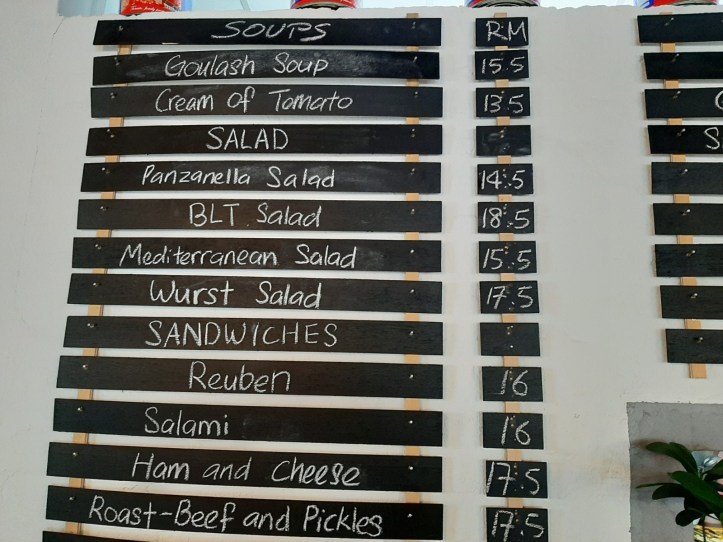 SOUPS RM
Goulash Soup 15.5
Cream of Tomato 13.5
SALAD
Panzanella Salad 14.5
BLT Salad 18.5
Mediterranean Salad 15.5
Wurst Salad 17.5
SANDWICHES
Reuben 16
Salami 16
Ham and Cheese 17.5
Roast-Beef and Pickles 17.5